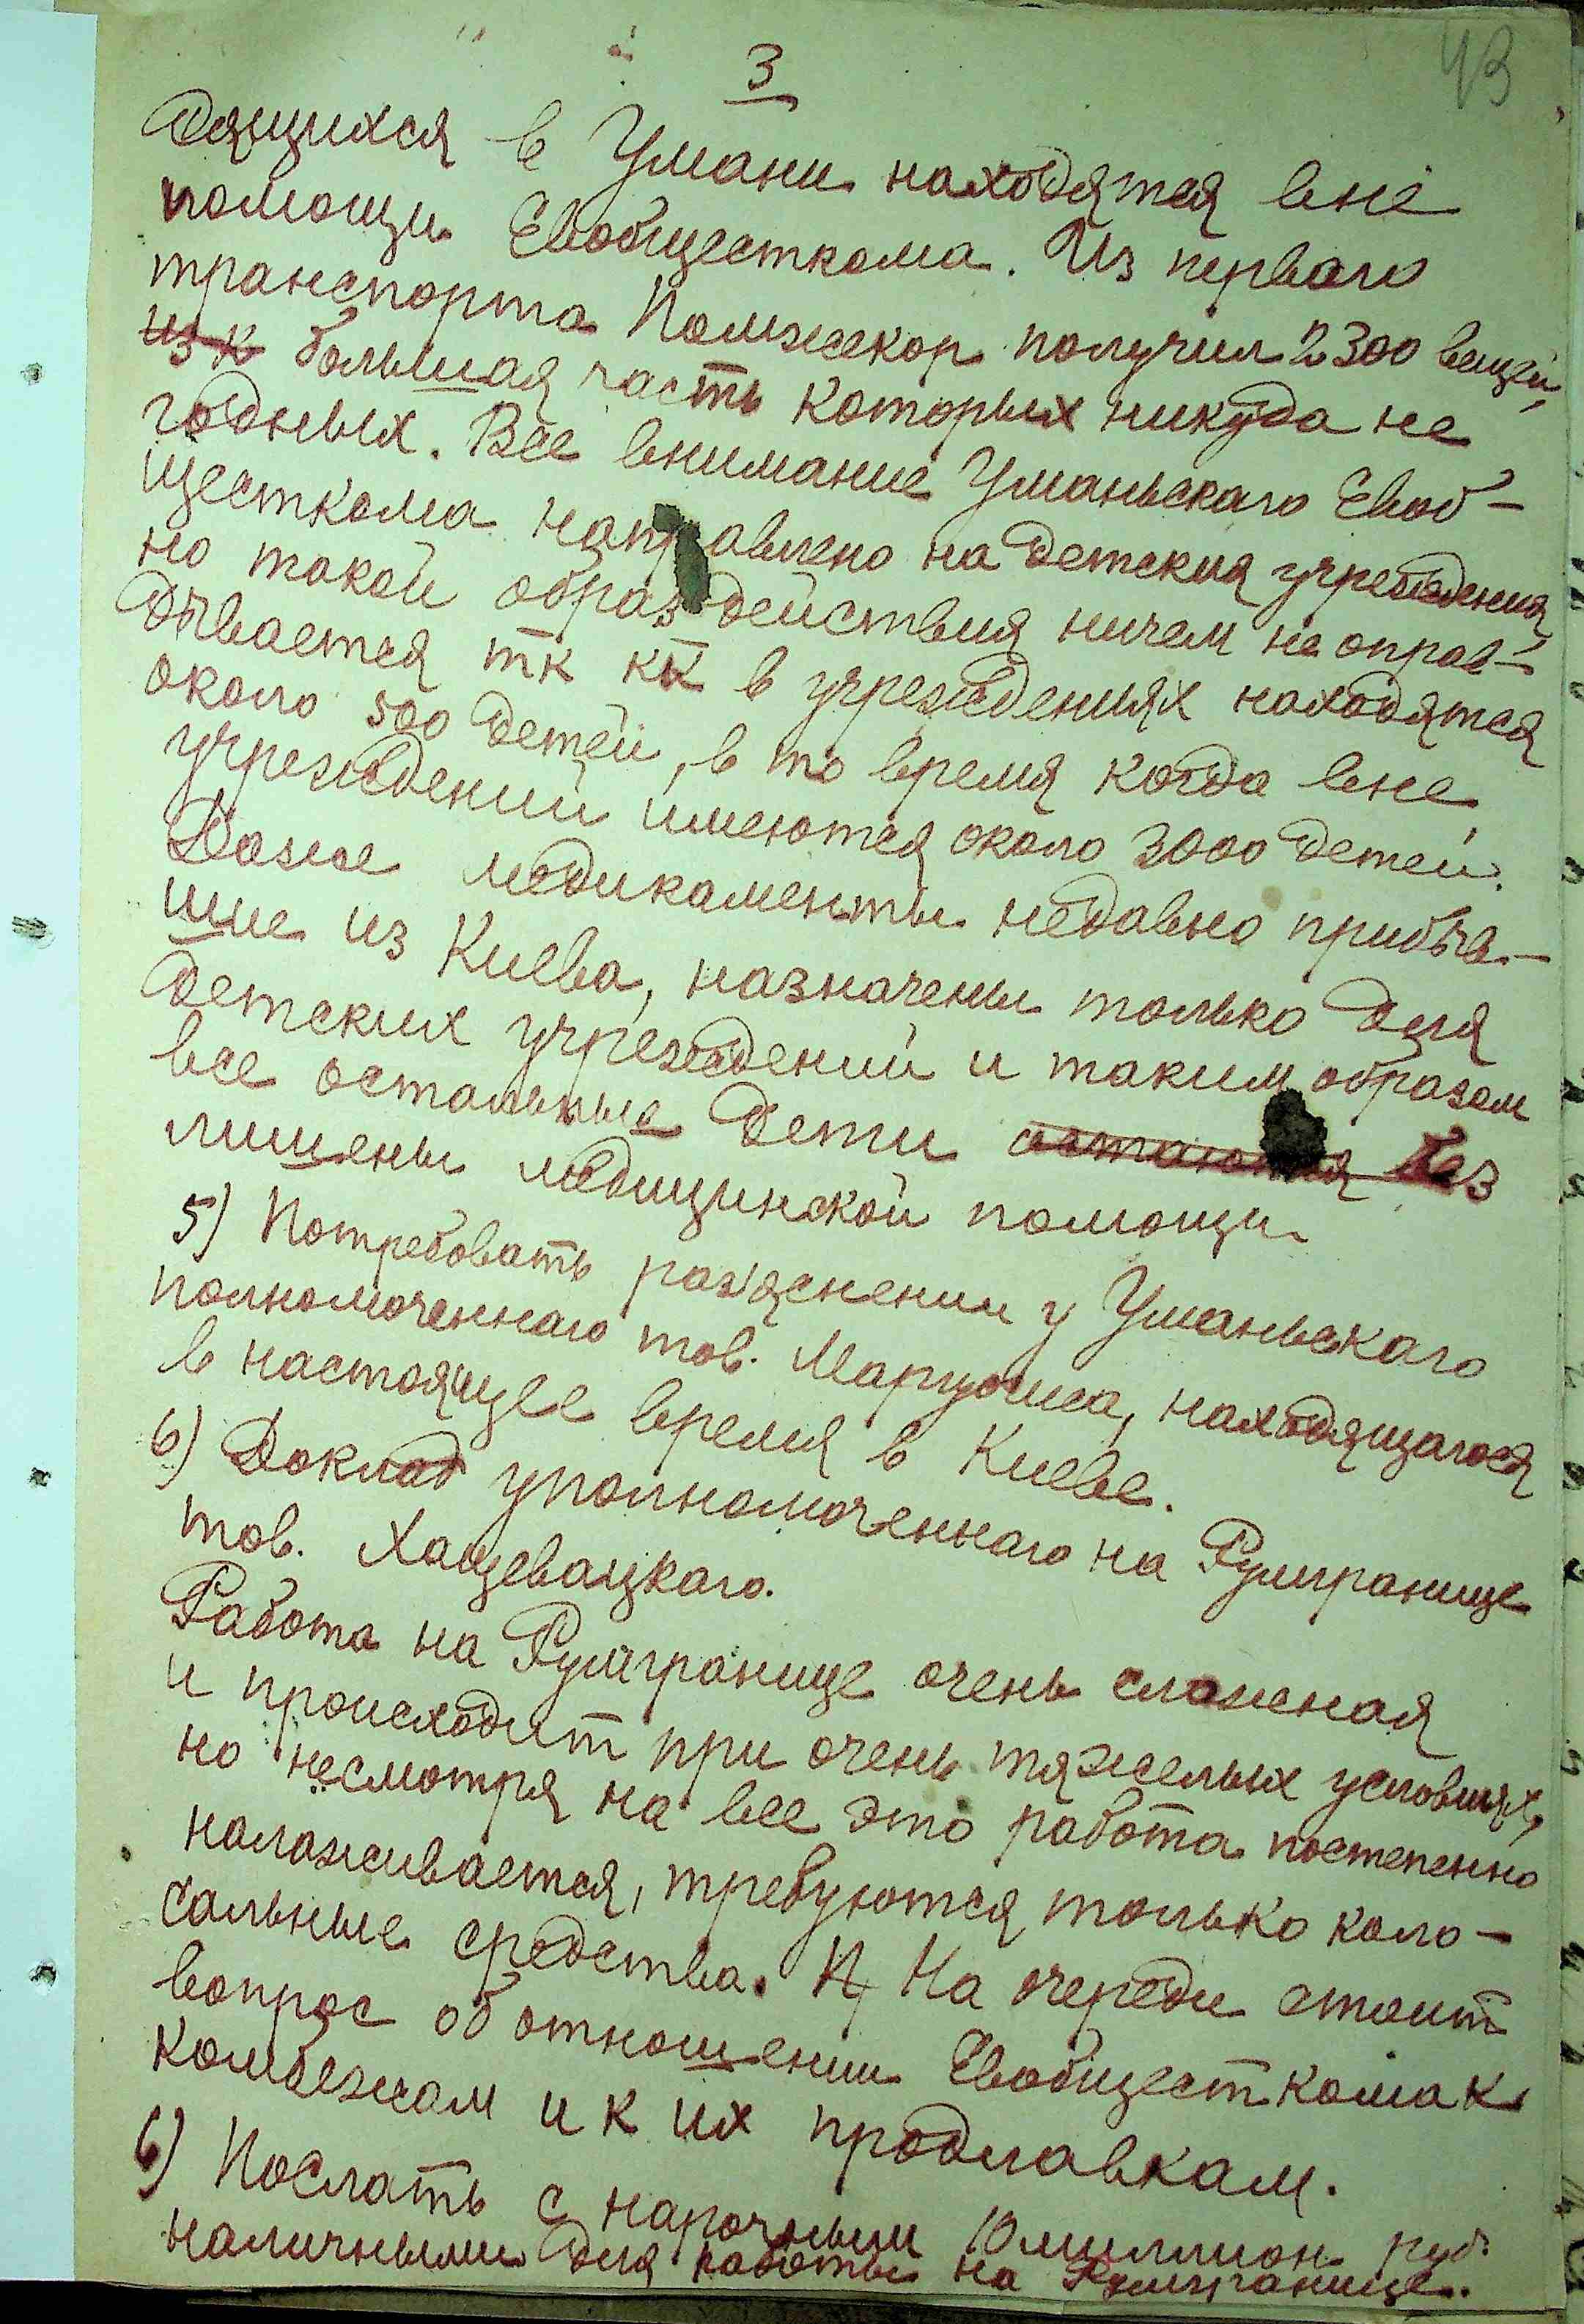 3
43
дящихся в Умани находятся вне
помощи Евобщесткома. Из первого
транспорта Помжекор получил 2300 вещей,
из к большая часть которых никуда не
годных. Все внимание Уманьскаго Евоб-
щесткома направлено на детския учреждения,
но такой образ действия ничем не оправ-
дывается тк кк в учреждениях находятся
около 500 детей, в то время когда вне
учреждений имеются около 3000 детей.
Даже медикаменты недавно прибыв-
шие из Киева, назначены только для
детских учреждений и таким образом
все остальные дети остаются без
лишены медицинской помощи
5) Потребовать раз'яснении у Уманьскаго
полномоченнаго тов. Маргулиса, находящагося
в настоящее время в Киеве.
6) Доклад уполномоченнаго на Румгранице
тов. Хащевацкаго.
Работа на Румгранице очень сложная
и происходит при очень тяжелых условиях,
но несмотря на все это работа постепенно
налаживается, требуются только коло-
сальные средства. На очереди стоит
вопрос об отношении Евобщесткома к
комбежам и к их продлавкам.
6) Послать с нарочным 10 миллион руб.
наличными для работы на Румгранице.